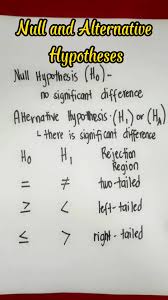 Null and Alternative
Hypotheses
Null Hypothesis (H₀) -
no significant difference
Alternative Hypothesis - (H₁) or (Hₐ)
↳ there is significant difference
H₀ H₁ Rejection
Region
= ≠ two-tailed
≥ < left-tailed
≤ > right-tailed